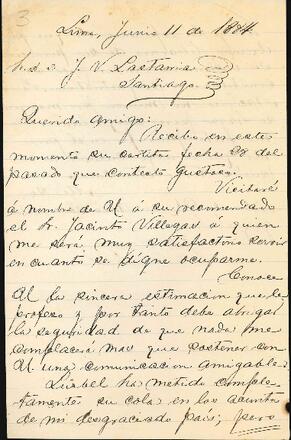 3
Lima, Junio 11 de 1884
S. D. J. V. Lastarria
Santiago.
Querido amigo:
Recibo en este
momento su cartita fecha 28 del
pasado que contesto gustoso.
Visitaré
á nombre de U á su recomendado
el Sr. Jacinto Villegas á quien
me será muy satisfactorio servir
en cuanto se digne ocuparme.
Conoce
U la sincera estimacion que le
profeso y por tanto debe abrigar
la seguridad de que nada me
complacerá mas que sostener con
U una comunicacion amigable.
Luzbel ha metido comple-
tamente su cola en los asuntos
de mi desgraciado país; pero